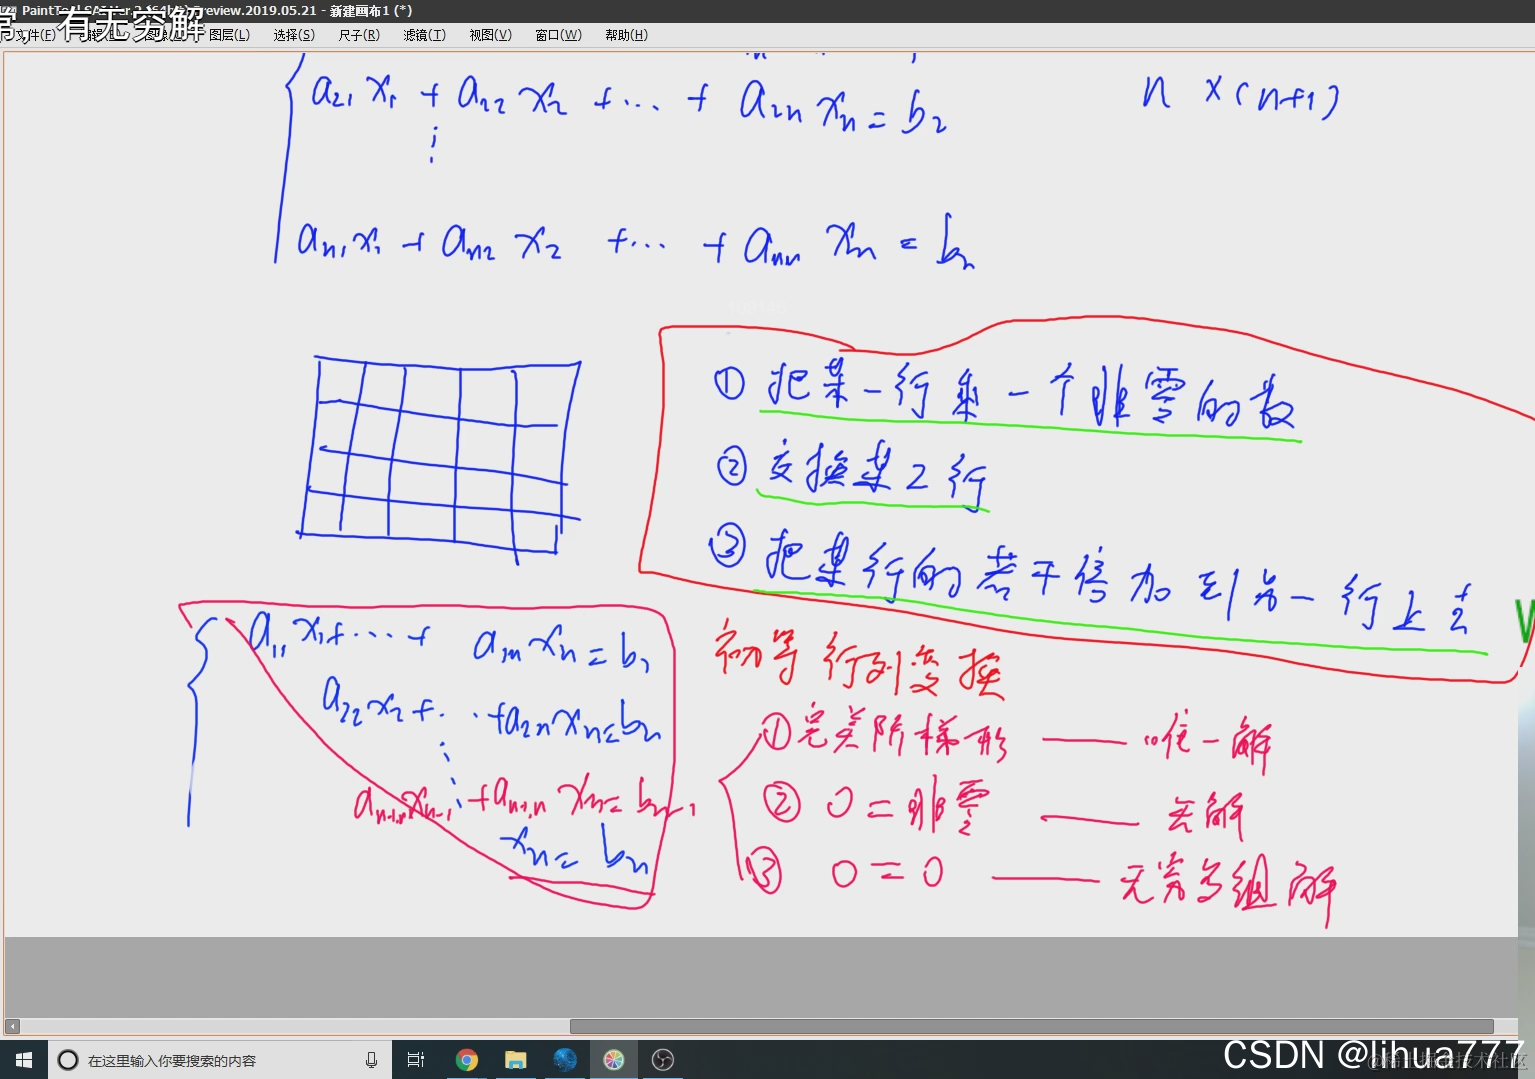 PaintTool SAI Ver.2 (64bit) Preview.2019.05.21 - 新建画布1 (*)
有无穷解
文件(F) 图层(L) 选择(S) 尺子(R) 滤镜(T) 视图(V) 窗口(W) 帮助(H)
a₂₁ x₁ + a₂₂ x₂ + ... + a₂ₙ xₙ = b₂ n × (n+1)
⋮
aₙ₁x₁ + aₙ₂ x₂ + ... + aₙₙ xₙ = bₙ
① 把某一行乘一个非零的数
② 交换某2行
③ 把某行的若干倍加到另一行上去
初等行列变换
a₁₁ x₁ + ... + a₁ₙ xₙ = b₁
a₂₂ x₂ + ... + a₂ₙ xₙ = bₙ
⋮
aₙ₋₁,ₙ₋₁ xₙ₋₁ + aₙ₋₁,ₙ xₙ = bₙ₋₁
xₙ = bₙ
①完美阶梯形 —— 唯一解
② 0 = 非零 —— 无解
③ 0 = 0 —— 无穷多组解
在这里输入你要搜索的内容
CSDN @lihua777
@稀土掘金技术社区